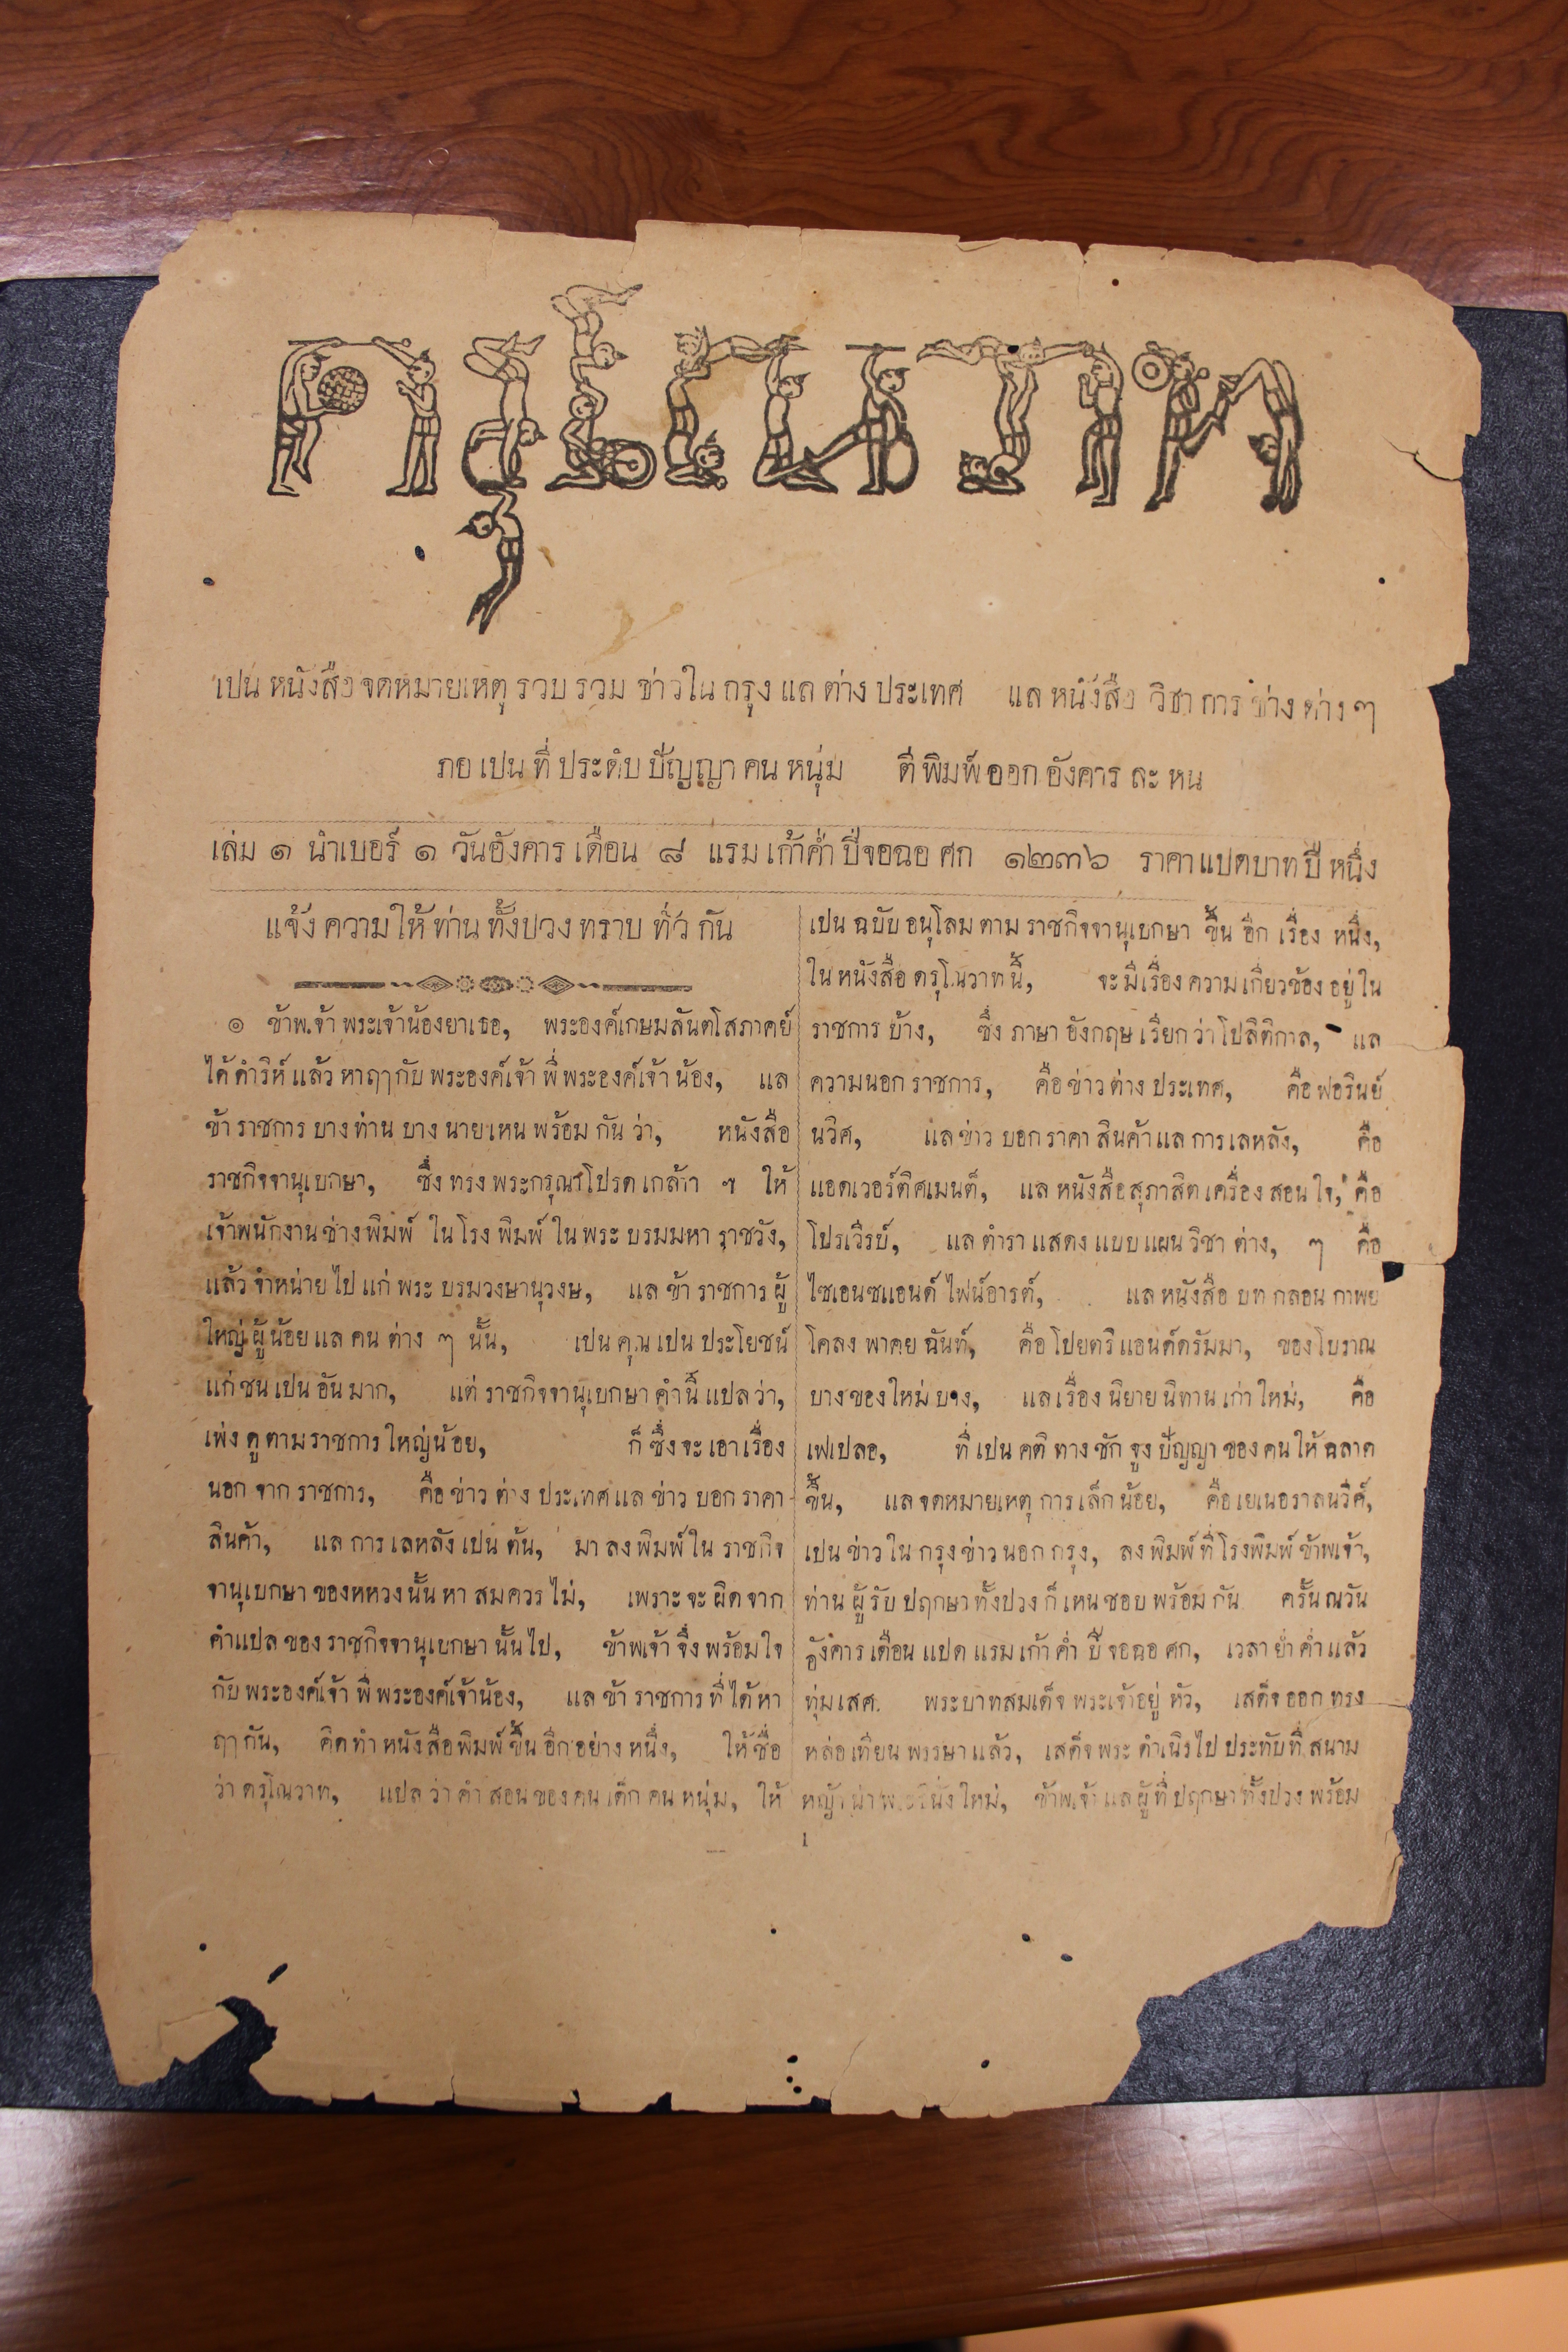 ดรุโณวาท
เปน หนังสือ จดหมายเหตุ รวบ รวม ข่าวใน กรุง แล ต่าง ประเทศ แล หนังสือ วิชา การ ช่าง ต่าง ๆ
ภอ เปน ที่ ประดับ ปัญญา คน หนุ่ม ตี พิมพ์ ออก อังคาร ละ หน
เล่ม ๑ นำเบอร์ ๑ วันอังคาร เดือน ๘ แรม เก้าค่ำ ปีจอฉอ ศก ๑๒๓๖ ราคาแปดบาท ปี หนึ่ง
แจ้ง ความ ให้ ท่าน ทั้งปวง ทราบ ทั่ว กัน
๏ ข้าพเจ้า พระเจ้าน้องยาเธอ, พระองค์เกษมสันตโสภาคย์
ได้ ดำริห์ แล้ว หาฤๅ กับ พระองค์เจ้า พี่ พระองค์เจ้า น้อง, แล
ข้า ราชการ บาง ท่าน บาง นาย เหน พร้อม กัน ว่า, หนังสือ
ราชกิจจานุเบกษา, ซึ่ง ทรง พระกรุณาโปรด เกล้า ฯ ให้
เจ้าพนักงาน ช่าง พิมพ์ ใน โรง พิมพ์ ใน พระ บรมมหา ราชวัง,
แล้ว จำหน่าย ไป แก่ พระ บรมวงษานุวงษ, แล ข้า ราชการ ผู้
ใหญ่ ผู้ น้อย แล คน ต่าง ๆ นั้น, เปน คุณ เปน ประโยชน์
แก่ ชน เปน อัน มาก, แต่ ราชกิจจานุเบกษา คำนี้ แปล ว่า,
เพ่ง ดู ตาม ราชการ ใหญ่น้อย, ก็ ซึ่ง จะ เอา เรื่อง
นอก จาก ราชการ, คือ ข่าว ต่าง ประเทศ แล ข่าว บอก ราคา
สินค้า, แล การ เลหลัง เปน ต้น, มา ลง พิมพ์ ใน ราชกิจ
จานุเบกษา ของหหวง นั้น หา สมควร ไม่, เพราะ จะ ผิด จาก
คำแปล ของ ราชกิจจานุเบกษา นั้น ไป, ข้าพเจ้า จึ่ง พร้อมใจ
กับ พระองค์เจ้า พี่ พระองค์เจ้าน้อง, แล ข้า ราชการ ที่ ได้ หา
ฤๅ กัน, คิด ทำ หนังสือ พิมพ์ ขึ้น อีก อย่าง หนึ่ง, ให้ ชื่อ
ว่า ดรุโณวาท, แปล ว่า คำ สอน ของ คน เด็ก คน หนุ่ม, ให้
เปน ฉบับ อนุโลม ตาม ราชกิจจานุเบกษา ขึ้น อีก เรื่อง หนึ่ง,
ใน หนังสือ ดรุโณวาท นี้, จะ มี เรื่อง ความ เกี่ยวข้อง อยู่ ใน
ราชการ บ้าง, ซึ่ง ภาษา อังกฤษ เรียก ว่า โปลิติกาล, แล
ความนอก ราชการ, คือ ข่าว ต่าง ประเทศ, คือ ฟอรินย์
นวิศ, แล ข่าว บอก ราคา สินค้า แล การ เลหลัง, คือ
แอดเวอร์ติศเมนต์, แล หนังสือ สุภาสิต เครื่อง สอน ใจ, คือ
โปรเวิรบ์, แล ตำรา แสดง แบบ แผน วิชา ต่าง, ๆ คือ
ไซเอนซแอนด์ ไฟน์อารต์, แล หนังสือ บท กลอน กาพย
โคลง พาคย ฉันท์, คือ โปยตรี แอนด์ดรัมมา, ของ โบราณ
บาง ของ ใหม่ บาง, แล เรื่อง นิยาย นิทาน เก่า ใหม่, คือ
เฟเปลอ, ที่ เปน คติ ทาง ชัก จูง ปัญญา ของ คน ให้ ฉลาด
ขึ้น, แล จดหมายเหตุ การ เล็ก น้อย, คือ เยเนอราลนวิศ์,
เปน ข่าว ใน กรุง ข่าว นอก กรุง, ลง พิมพ์ ที่ โรงพิมพ์ ข้าพเจ้า,
ท่าน ผู้ รับ ปฤกษา ทั้งปวง ก็ เหน ชอบ พร้อม กัน ครั้น ณวัน
อังคาร เดือน แปด แรม เก้า ค่ำ ปี จอฉอ ศก, เวลา ย่ำ ค่ำ แล้ว
ทุ่ม เสศ พระบาทสมเด็จ พระเจ้าอยู่ หัว, เสด็จ ออก ทรง
หล่อ เทียน พรรษา แล้ว, เสด็จ พระ ดำเนิร ไป ประทับ ที่ สนาม
หญ้า น่า พระที่นั่ง ใหม่, ข้าพเจ้า แล ผู้ ที่ ปฤกษา ทั้งปวง พร้อม
1